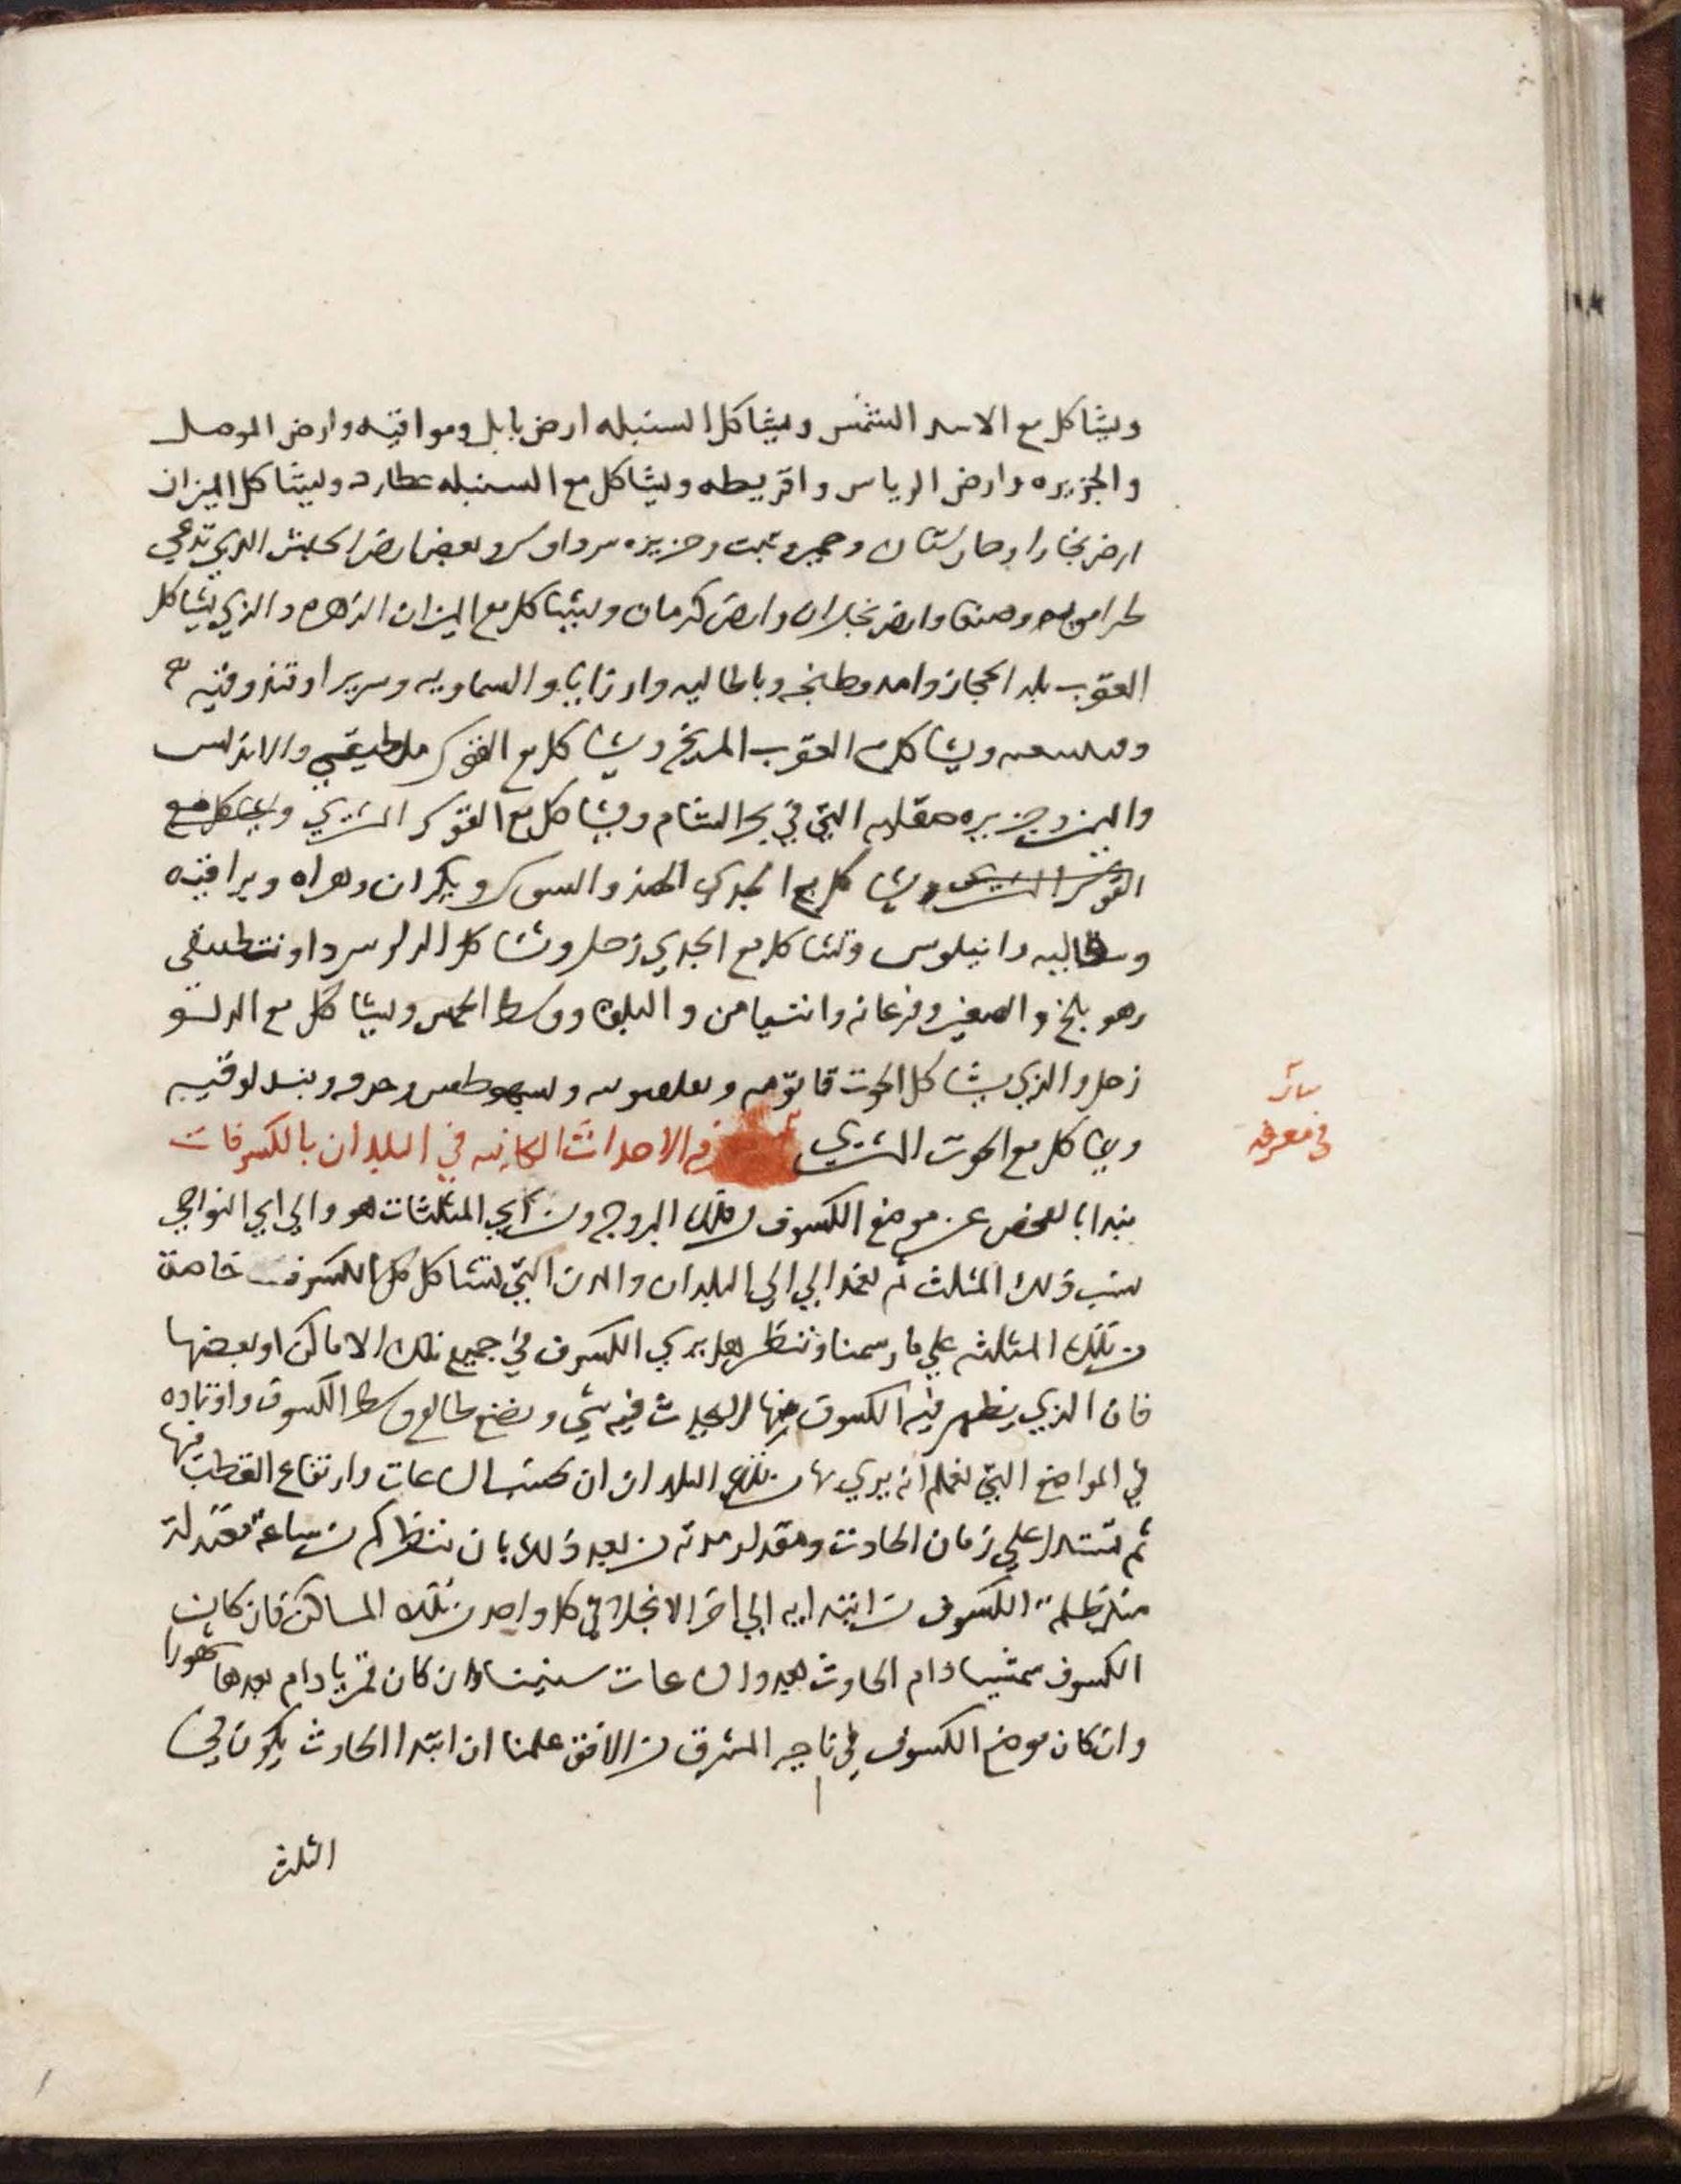 ويشاكل مع الاسد الشمس ويشاكل السنبله ارض بابل ومواقيه وارض الموصل
والجزيره وارض الرياس واقريطه ويشاكل مع السنبله عطارد ويشاكل الميزان
ارض بخارا وحارستان وحمير وتبت وجزيره سرداوس وبعض ارض الحبش الذي تدعي
وصنعا وارض نجاران وارض كرمان ويشاكل مع الميزان الزهره والذي يشاكل
العقرب بلد الحجاز وامد وطنجه وباطاليه وارزايا والسماويه وسريرا وقندوقيه
ويشاكل مع العقرب المريخ ويشاكل مع القوس والاندلس
واليمن وجزيره صقليه التي في بحر الشام ويشاكل مع القوس المشتري ويشاكل مع
القوس المشتري ويشاكل مع الجدي الهند والسوس ويكران وهراه وبراقيه
وسقالبيه وانيلوس وتشاكل مع الجدي زحل وتشاكل الدلو سرداونتطيقي
وهو بلخ والصغير وفرغانه وانتيامن والبلقا ووسط الحبس ويشاكل مع الدلو
زحل والذي يشاكل الحوت
ويشاكل مع الحوت المشتري في الاحداث الكاينه في البلدان بالكسوفات
بيان
في معرفه
نبدا بالفحص عن موضع الكسوف من فلك البروج ومن اي المثلثات هو والي اي النواحي
ينسب ذلك المثلث ثم نعمد الي الي البلدان والمدن التي تشاكل كل الكسوف خاصة
من تلك المثلثه علي ما رسمنا وننظر هل يري الكسوف في جميع تلك الاماكن او بعضها
فان الذي يظهر فيه الكسوف منها ال يحدث فيه شي ونضع طالع وسط الكسوف واوتاده
في المواضع التي نعلم انه يري بها من تلك البلدان ان كسبت الساعات وارتفاع القطب فيها
ثم نستدل علي زمان الحادث ومقدار مدته من بعد ذلك بان ننظر كم من ساعة معتدلة
منذ ظلمة الكسوف من ابتدايه الي اخر الانجلا في كل واحد من تلك المساكن فان كان
الكسوف شمسيا دام الحادث بعدد الساعات سنينا وان كان قمريا دام بعدها شهورا
وان كان موضع الكسوف في ناحيه المشرق من الافق علمنا ان ابتدا الحادث يكون في
الثلث